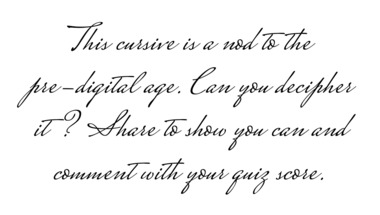 This cursive is a nod to the
pre-digital age. Can you decipher
it? Share to show you can and
comment with your quiz score.